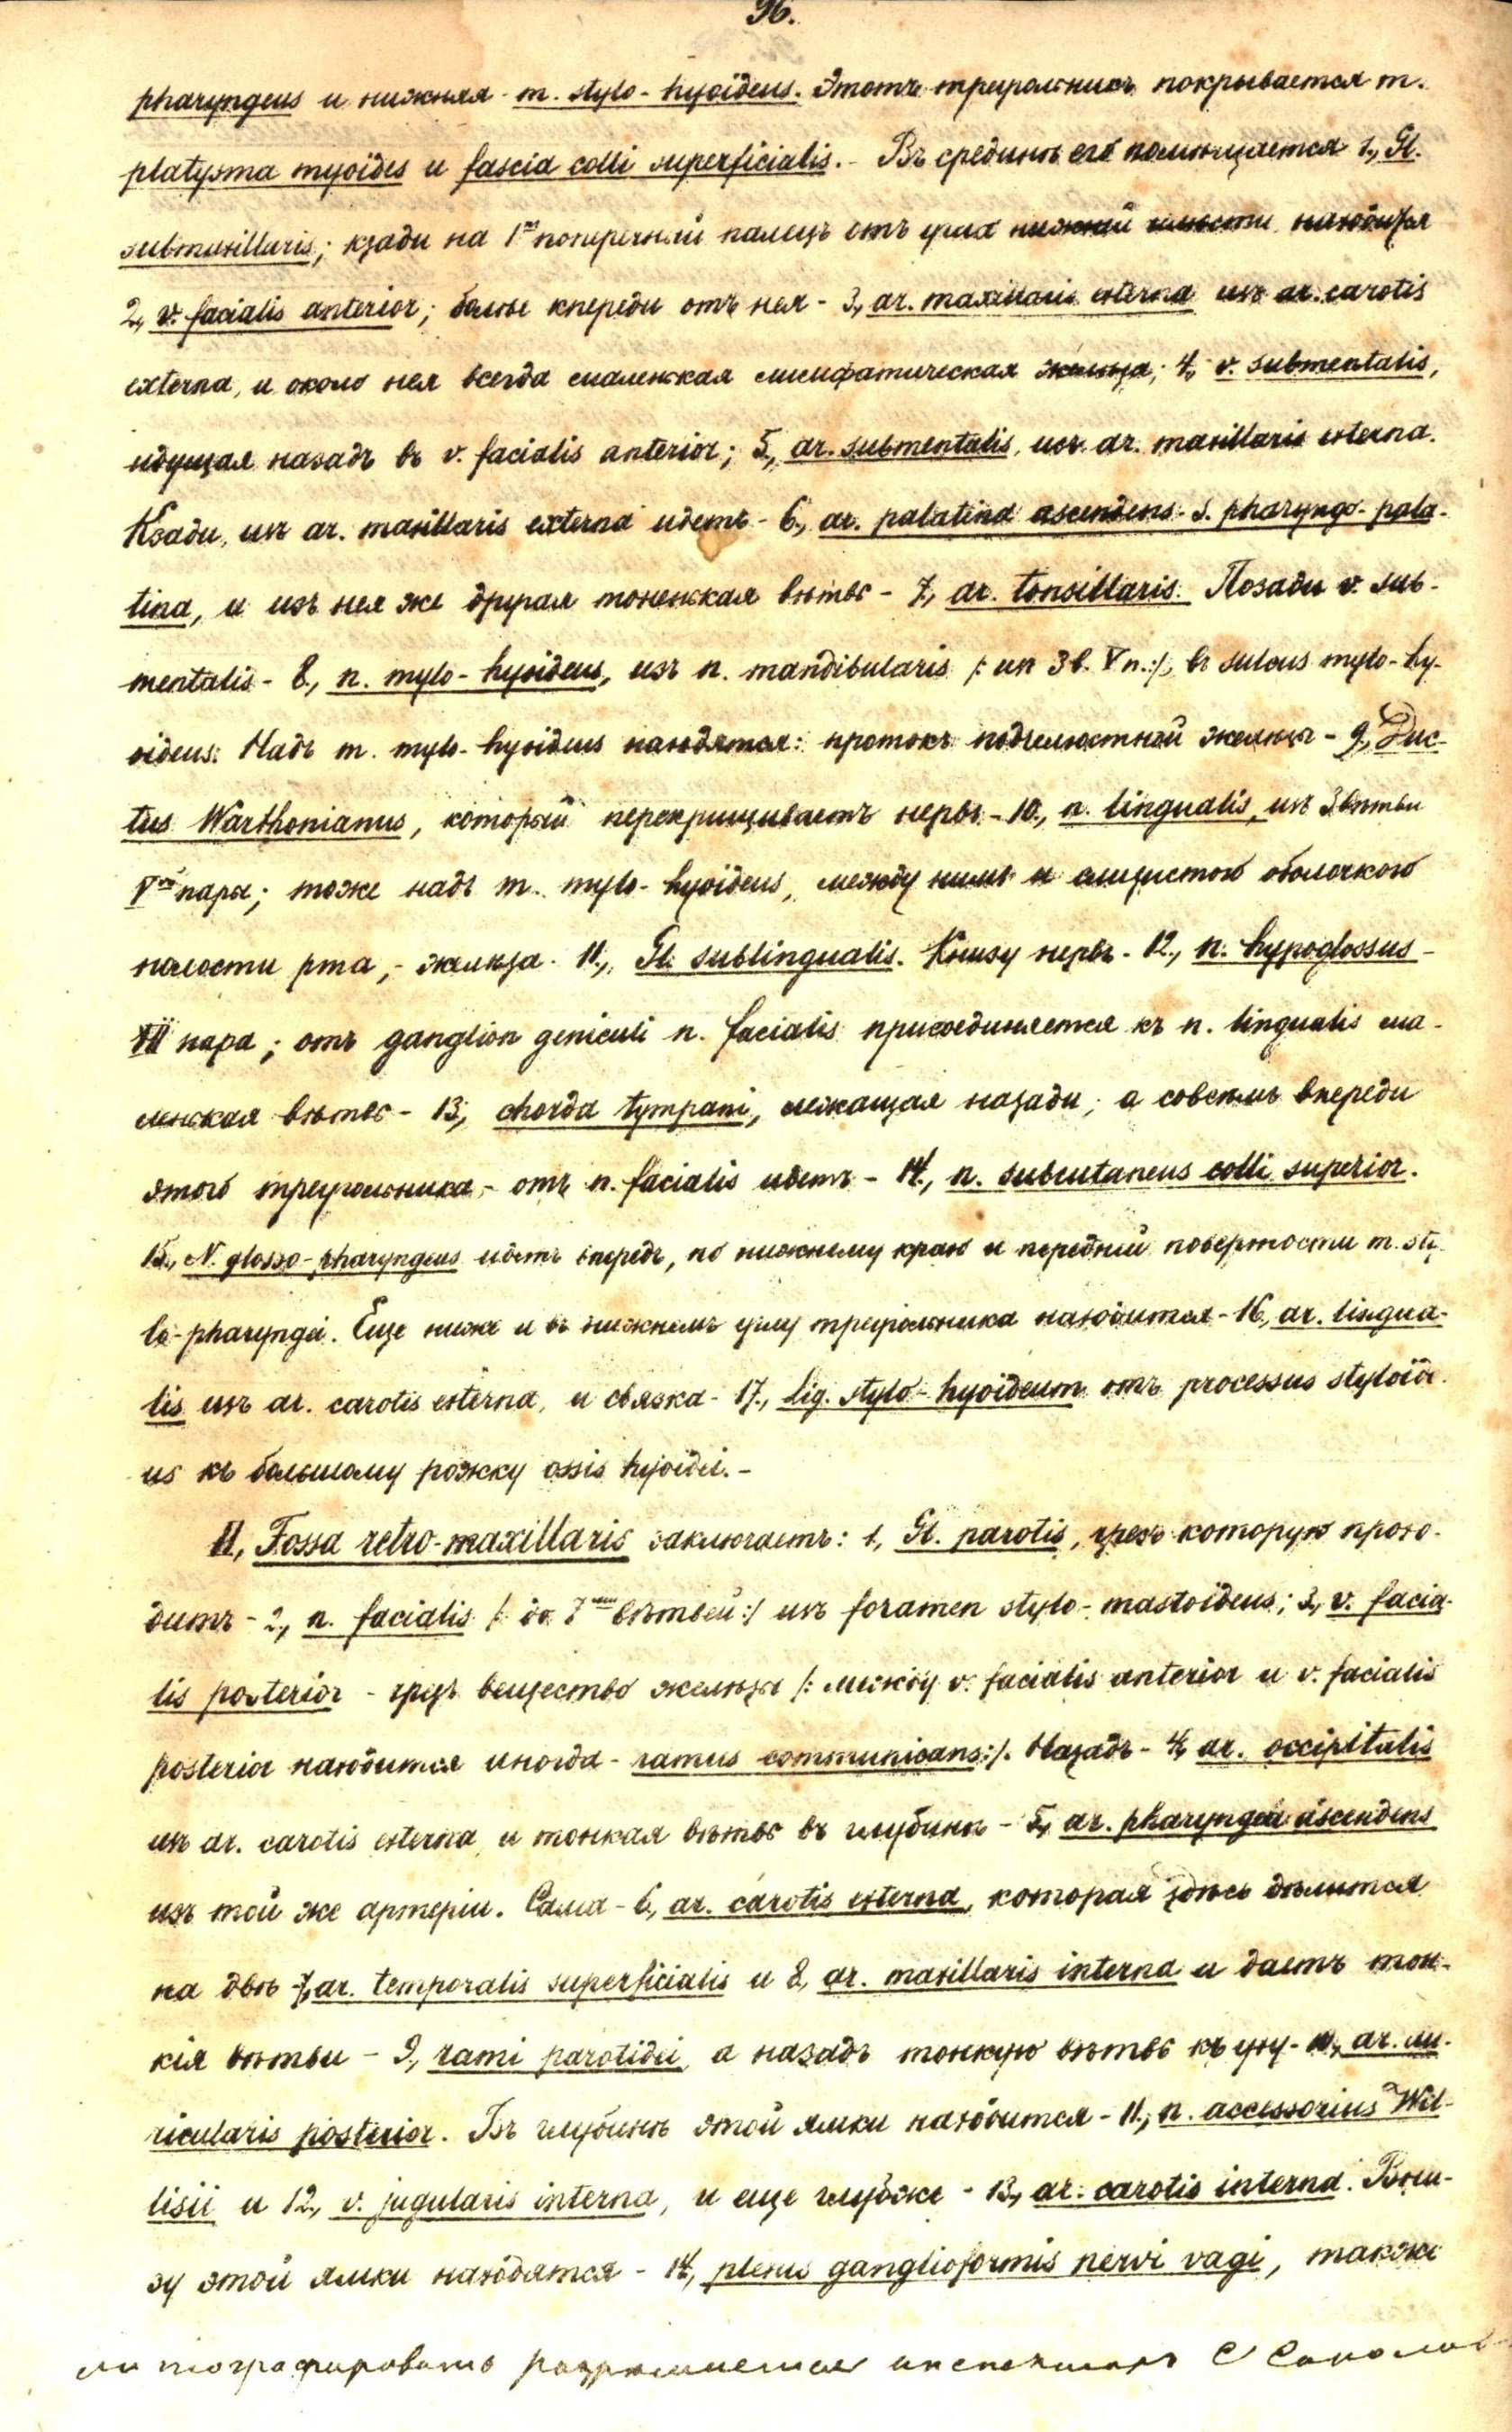 96.
pharyngeus и нижняя - m. stylo-hyoïdeus. Этотъ треугольникъ покрывается m.
platysma myoïdes и fascia colli superficialis. - Въ срединѣ его помѣщается 1., Gl.
submaxillaris; кзади на 1 поперечный палецъ отъ угла нижней челюсти находится
2., v. facialis anterior; болѣе кпереди отъ нея - 3., ar. maxillaris externa изъ ar. carotis
externa, и около нея всегда маленькая лимфатическая железа; 4., v. submentalis,
идущая назадъ въ v. facialis anterior; 5., ar. submentalis, изъ ar. maxillaris externa.
Кзади, изъ ar. maxillaris externa идетъ - 6., ar. palatina ascendens s. pharyngo-pala-
tina, и изъ нея же другая тоненькая вѣтвь - 7., ar. tonsillaris. Позади v. sub-
mentalis - 8., n. mylo-hyoideus, изъ n. mandibularis /: изъ 3 в. V п.:/, въ sulcus mylo-hy-
oideus. Надъ m. mylo-hyoideus находятся: протокъ подчелюстной железы - 9., Duc-
tus Warthonianus, который перекрещиваетъ нервъ - 10., n. lingualis, изъ 3 вѣтви
V пары; тоже надъ m. mylo-hyoïdeus, между нимъ и слизистою оболочкою
полости рта, - железа - 11., Gl. sublingualis. Книзу нервъ - 12., n. hypoglossus -
пара; отъ ganglion geniculi n. facialis присоединяется къ n. lingualis ма-
ленькая вѣтвь - 13., chorda tympani, лежащая назади; а совсѣмъ впереди
этого треугольника, - отъ n. facialis идетъ - 14., n. subcutaneus colli superior.
15., N. glosso-pharyngeus идетъ впередъ, по нижнему краю и передней поверхности m. sty-
lo-pharyngei. Еще ниже и въ нижнемъ углу треугольника находится - 16., ar. lingua-
lis изъ ar. carotis externa, и связка - 17., lig. stylo-hyoideum отъ processus styloïde-
us къ большому рожку ossis hyoidei. -
II, Fossa retro-maxillaris заключаетъ: 1, Gl. parotis, чрезъ которую прохо-
дитъ - 2., n. facialis /: до 7 вѣтвей:/ изъ foramen stylo-mastoïdeus; 3., v. facia-
lis posterior - чрезъ вещество железы /: между v. facialis anterior и v. facialis
posterior находится иногда - ramus communicans:/. Назадъ - 4., ar. occipitalis
изъ ar. carotis externa и тонкая вѣтвь въ глубинѣ - 5., ar. pharyngea ascendens
изъ той же артеріи. Сама - 6., ar. carotis externa, которая здѣсь дѣлится
на двѣ - 7., ar. temporalis superficialis и 8., ar. maxillaris interna и даетъ тон-
кія вѣтви - 9., rami parotidei, а назадъ тонкую вѣтвь къ уху - 10., ar. au-
ricularis posterior. Въ глубинѣ этой ямки находится - 11., n. accessorius Wil-
lisii и 12., v. jugularis interna, и еще глубже - 13., ar. carotis interna. Вни-
зу этой ямки находятся - 14., plexus ganglioformis nervi vagi, также
литографировать разрешается инспекторъ С